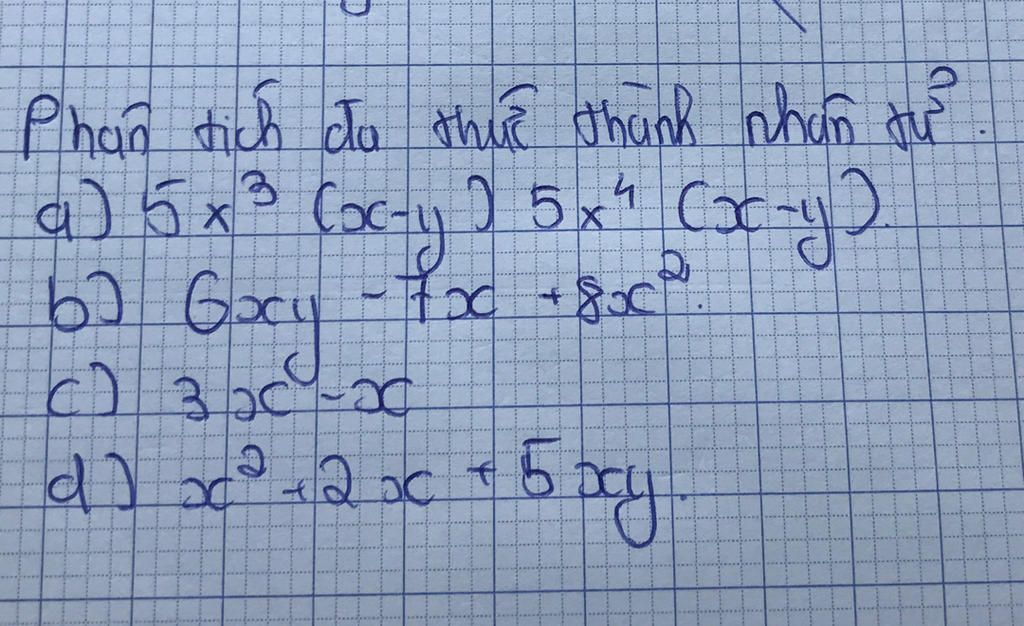 Phân tích đa thức thành nhân tử.
a) 5x³ (x-y) 5x⁴ (x-y).
b) 6xy - 7x + 8x².
c) 3x - x
d) x² + 2x + 5xy.